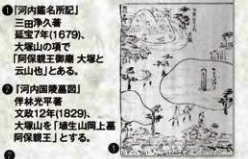 ❶『河内鑑名所記』
三田浄久著
延宝7年(1679)、
大塚山の項で
「阿保親王御廟 大塚と
云山也」とある。
❷『河内国陵墓図』
伴林光平著
文政12年(1829)、
大塚山を「埴生山岡上墓
阿保親王」とする。
❷
❶